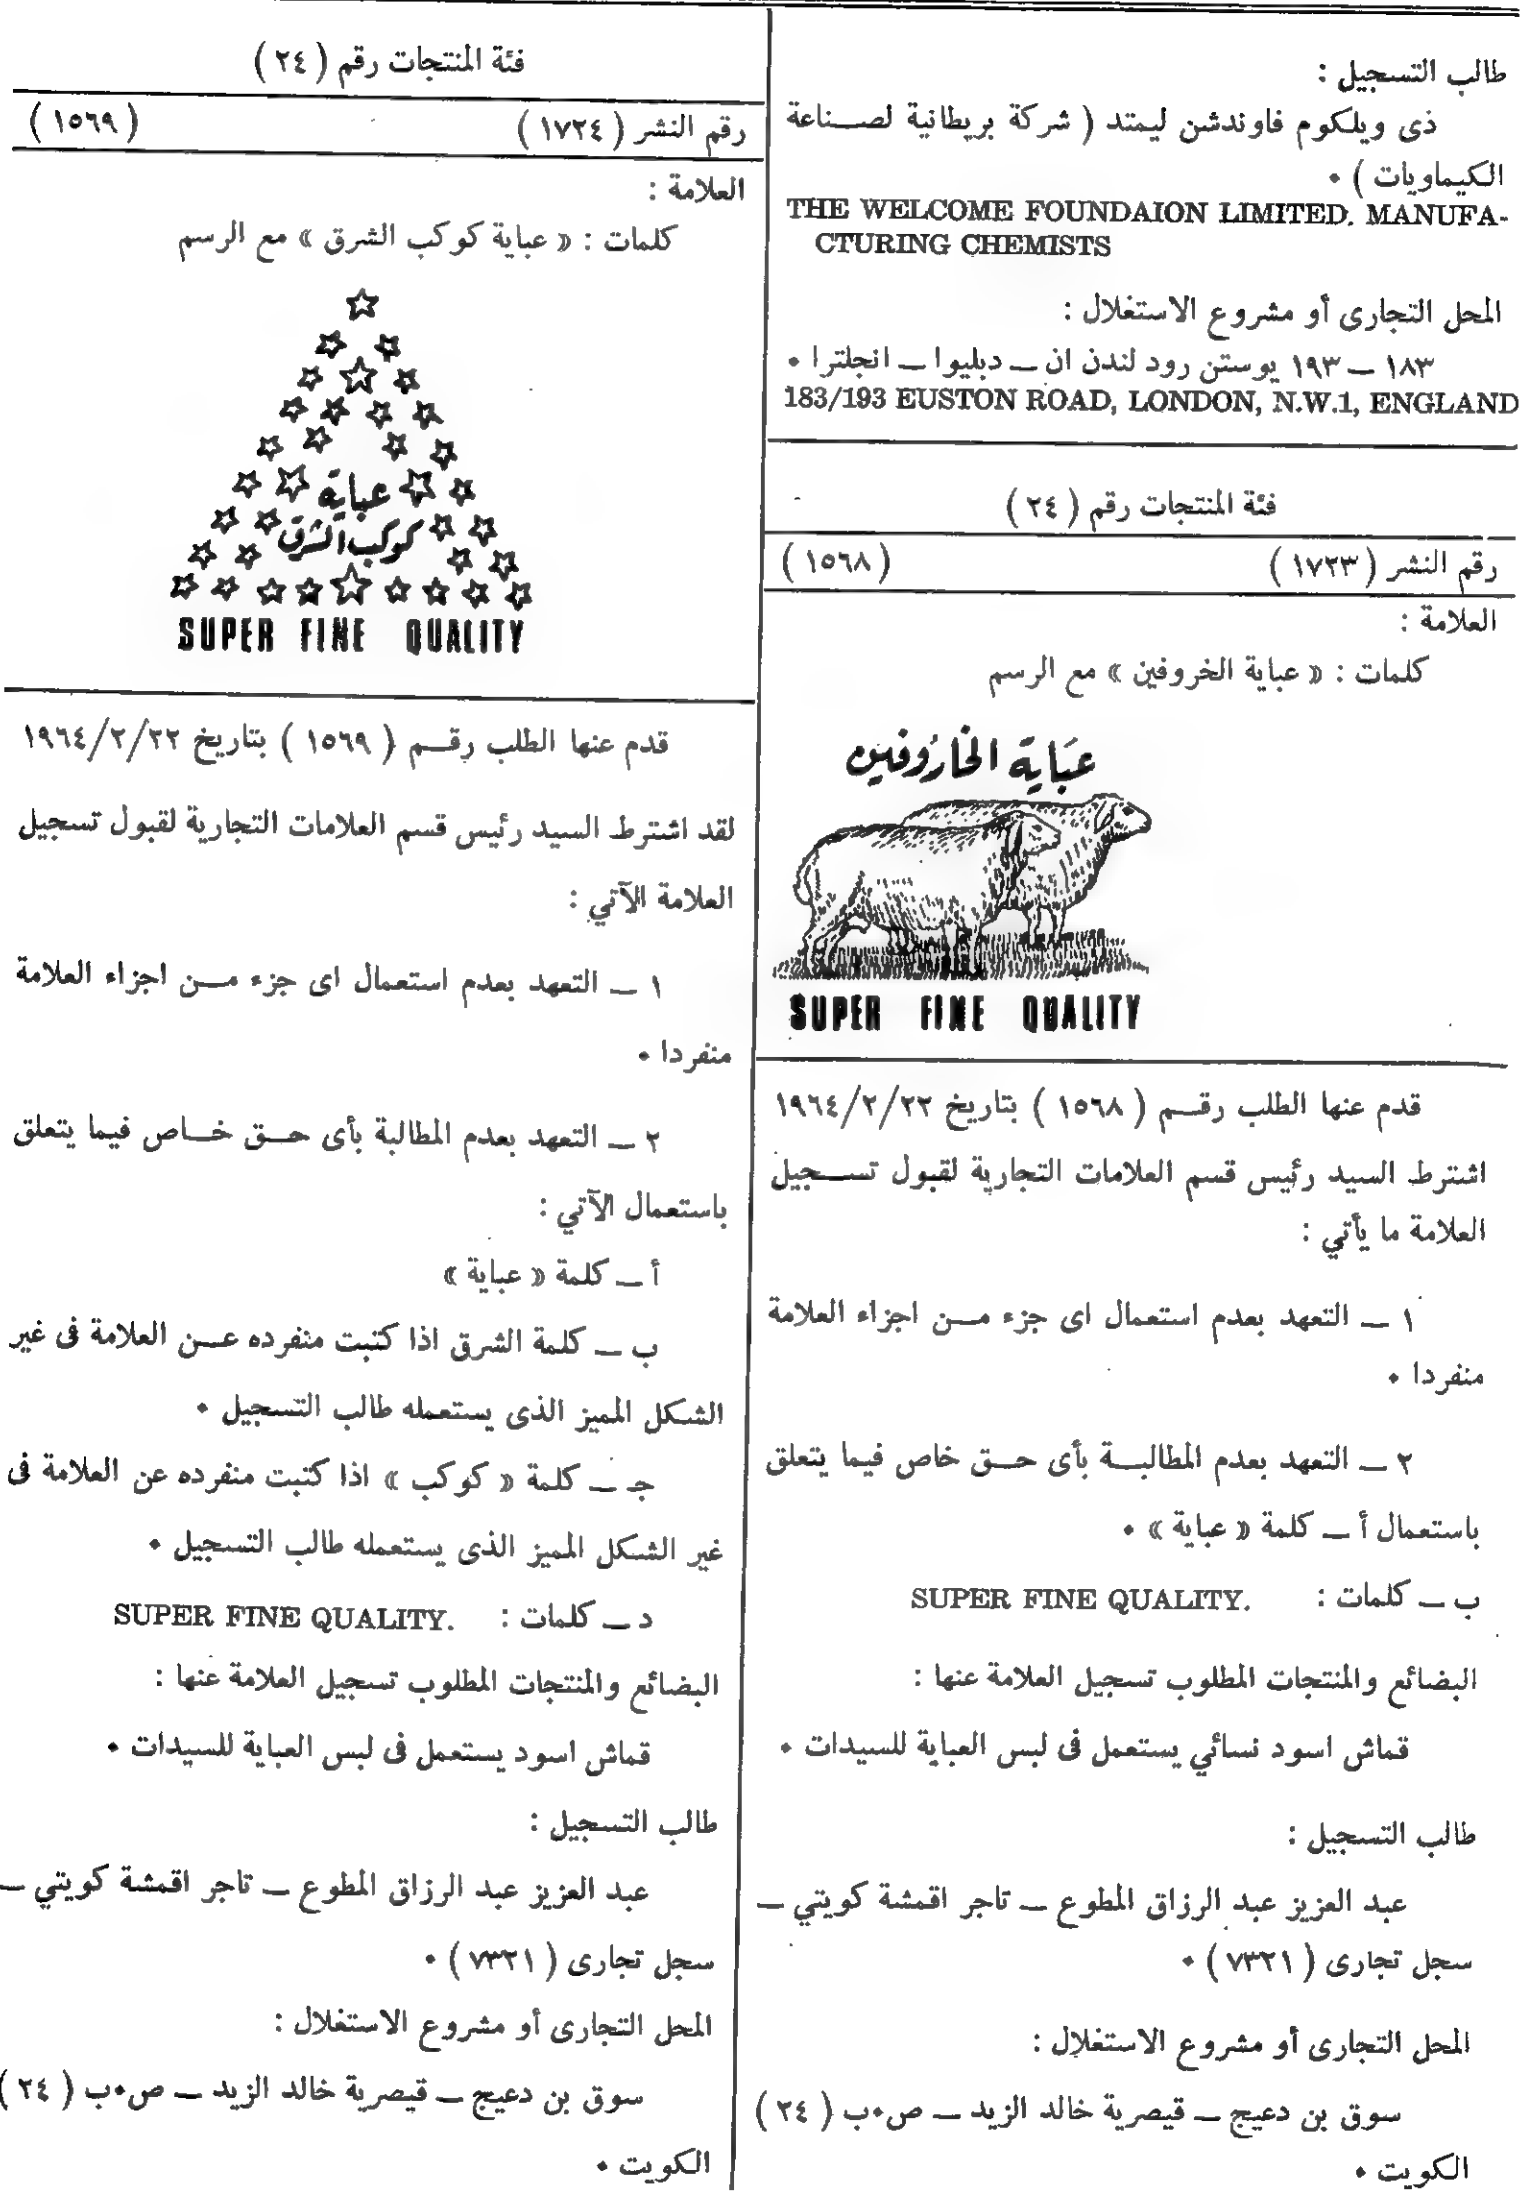 طالب التسجيل :
ذى ويلكوم فاوندشن ليمتد ( شركة بريطانية لصناعة
الكيماويات ) .
THE WELCOME FOUNDAION LIMITED. MANUFA-
CTURING CHEMISTS
المحل التجارى أو مشروع الاستغلال :
١٨٣ – ١٩٣ يوستن رود لندن ان – دبليوا – انجلترا .
183/193 EUSTON ROAD, LONDON, N.W.1, ENGLAND
فئة المنتجات رقم ( ٢٤ )
رقم النشر ( ١٧٢٣ ) ( ١٥٦٨ )
العلامة :
كلمات : « عباية الخروفين » مع الرسم
عبَاية الخارُوفين
SUPER FINE QUALITY
قدم عنها الطلب رقم ( ١٥٦٨ ) بتاريخ ١٩٦٤/٢/٢٢
اشترط السيد رئيس قسم العلامات التجارية لقبول تسجيل
العلامة ما يأتي :
١ – التعهد بعدم استعمال اى جزء من اجزاء العلامة
منفردا .
٢ – التعهد بعدم المطالبة بأى حق خاص فيما يتعلق
باستعمال أ – كلمة « عباية » .
ب – كلمات : SUPER FINE QUALITY.
البضائع والمنتجات المطلوب تسجيل العلامة عنها :
قماش اسود نسائي يستعمل فى لبس العباية للسيدات .
طالب التسجيل :
عبد العزيز عبد الرزاق المطوع – تاجر اقمشة كويتي –
سجل تجارى ( ٧٣٢١ ) .
المحل التجارى أو مشروع الاستغلال :
سوق بن دعيج – قيصرية خالد الزيد – ص.ب ( ٢٤ )
الكويت .
فئة المنتجات رقم ( ٢٤ )
رقم النشر ( ١٧٢٤ ) ( ١٥٦٩ )
العلامة :
كلمات : « عباية كوكب الشرق » مع الرسم
عباية
كوكب الشرق
SUPER FINE QUALITY
قدم عنها الطلب رقم ( ١٥٦٩ ) بتاريخ ١٩٦٤/٢/٢٢
لقد اشترط السيد رئيس قسم العلامات التجارية لقبول تسجيل
العلامة الآتي :
١ – التعهد بعدم استعمال اى جزء من اجزاء العلامة
منفردا .
٢ – التعهد بعدم المطالبة بأى حق خاص فيما يتعلق
باستعمال الآتي :
أ – كلمة « عباية »
ب – كلمة الشرق اذا كتبت منفرده عن العلامة فى غير
الشكل المميز الذى يستعمله طالب التسجيل .
جـ – كلمة « كوكب » اذا كتبت منفرده عن العلامة فى
غير الشكل المميز الذى يستعمله طالب التسجيل .
د – كلمات : SUPER FINE QUALITY.
البضائع والمنتجات المطلوب تسجيل العلامة عنها :
قماش اسود يستعمل فى لبس العباية للسيدات .
طالب التسجيل :
عبد العزيز عبد الرزاق المطوع – تاجر اقمشة كويتي –
سجل تجارى ( ٧٣٢١ ) .
المحل التجارى أو مشروع الاستغلال :
سوق بن دعيج – قيصرية خالد الزيد – ص.ب ( ٢٤ )
الكويت .